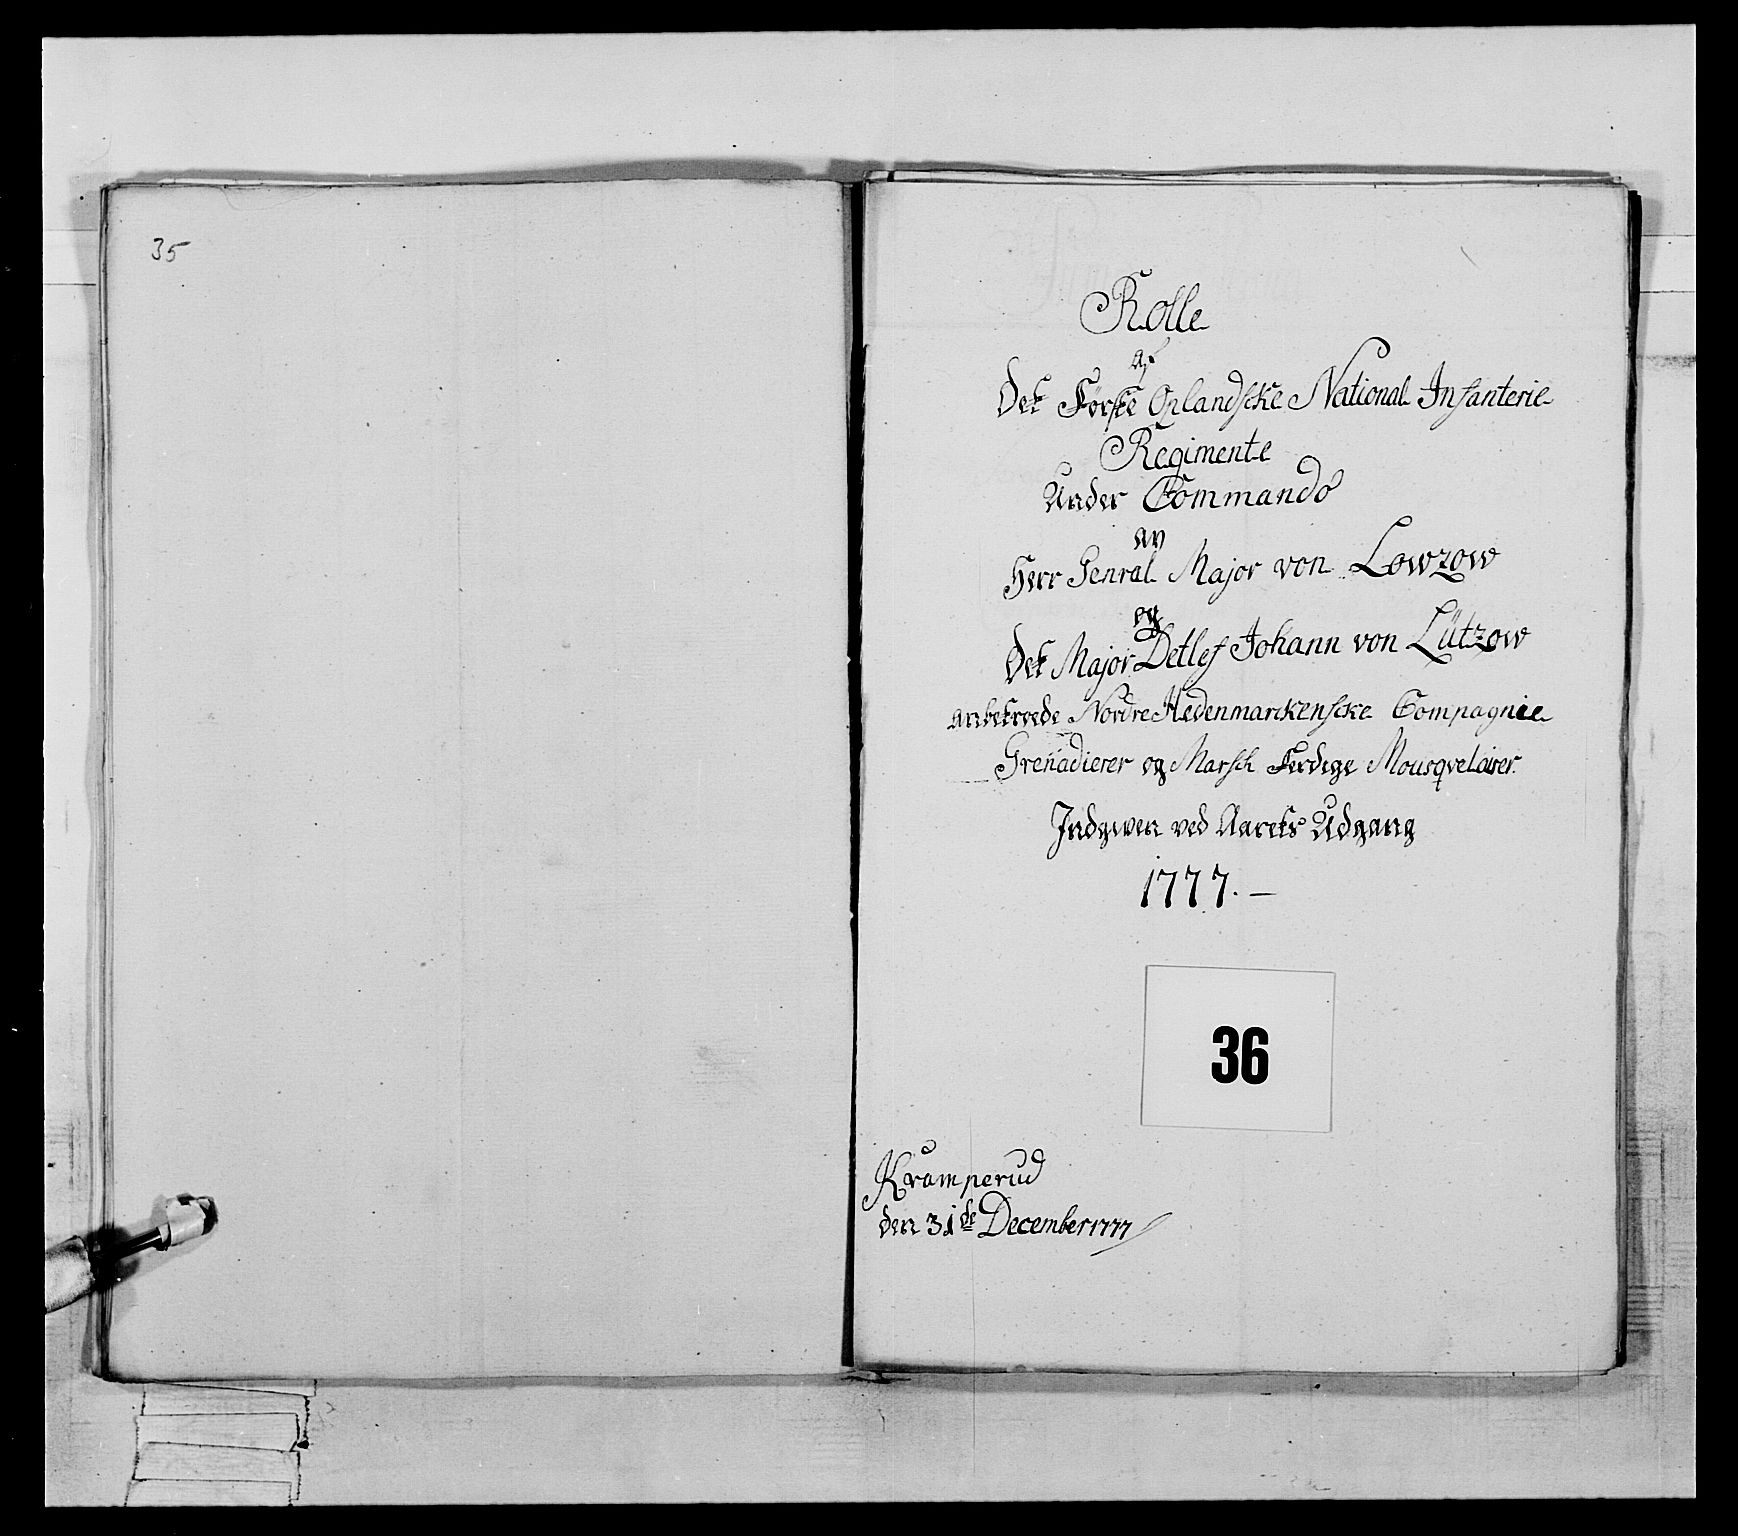 35
Rolle
af
Det Første Oplandske National Infanterie
Regimente
Under Commando
av
Herr Genral Major von Lowzow
og
Det Major Detlef Johann von Lützow
anbetroede Nordre Hedenmarckenscke Compagnie
Grenadierer og Marsch Ferdige Mousqvetairer
Indgiven ved Aarets Udgang
1777. —
36
Kramperud
den 31de December 1777